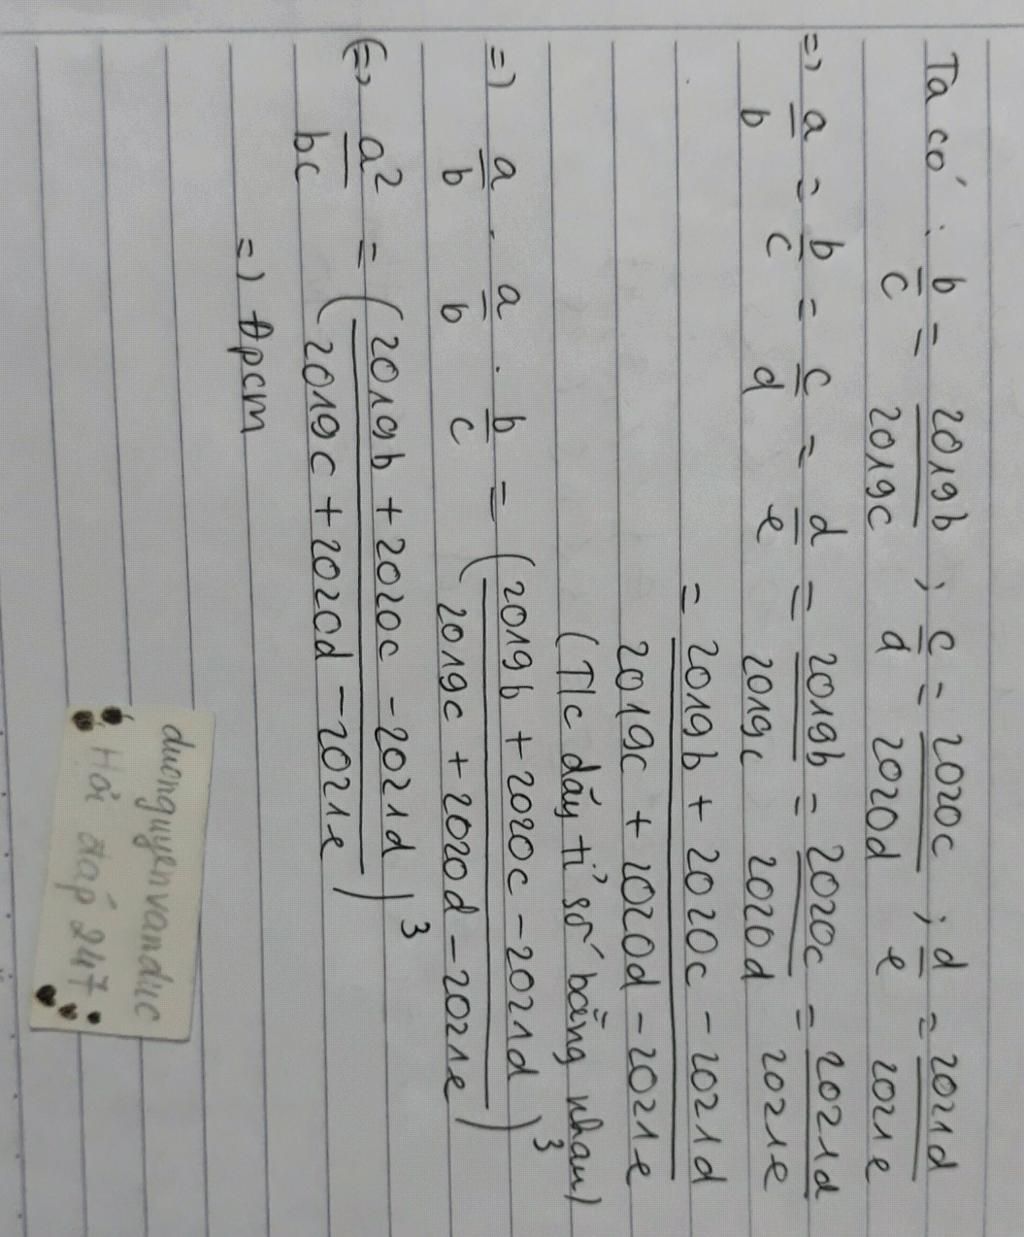 Ta có: b/c = 2019b/2019c ; c/d = 2020c/2020d ; d/e = 2021d/2021e
=> a/b = b/c = c/d = d/e = 2019b/2019c = 2020c/2020d = 2021d/2021e
= (2019b + 2020c - 2021d)/(2019c + 2020d - 2021e)
(T/c dãy tỉ số bằng nhau)
=> a/b . a/b . b/c = ((2019b + 2020c - 2021d)/(2019c + 2020d - 2021e))³
(=> a²/bc = ((2019b + 2020c - 2021d)/(2019c + 2020d - 2021e))³
=) Đpcm
duongnguyenvanduc
Hỏi đáp 247